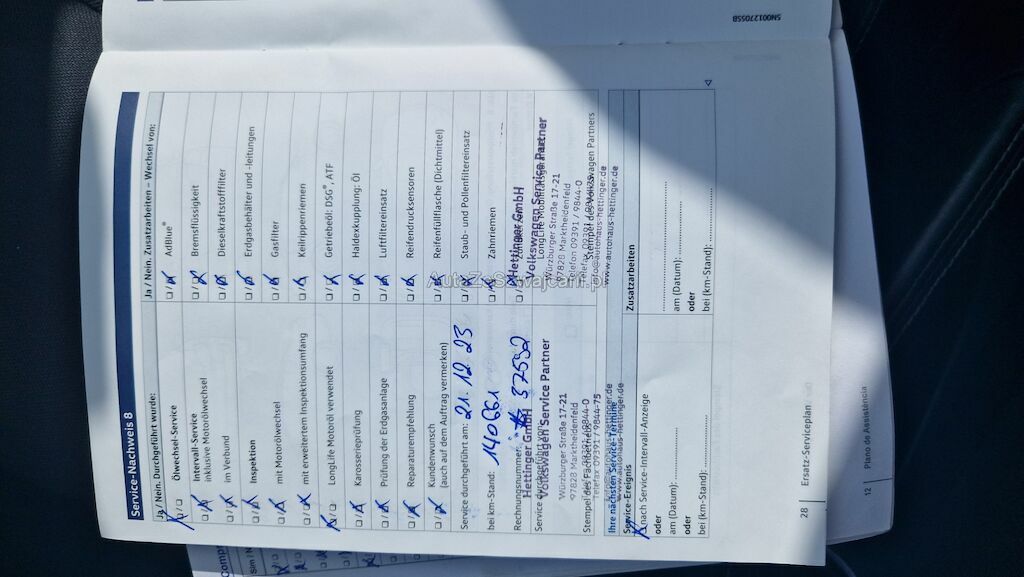 Service-Nachweis 8
Ja / Nein. Durchgeführt wurde:
Ölwechsel-Service
Intervall-Service
inklusive Motorölwechsel
im Verbund
Inspektion
mit Motorölwechsel
mit erweitertem Inspektionsumfang
LongLife Motoröl verwendet
Karosserieprüfung
Prüfung der Erdgasanlage
Reparaturempfehlung
Kundenwunsch
(auch auf dem Auftrag vermerken)
Service durchgeführt am: 21.12.23
bei km-Stand: 140661
Rechnungsnummer:
Hettinger GmbH
Volkswagen Service Partner
Würzburger Straße 17-21
97828 Marktheidenfeld
Telefax 09391 / 9844-75
Ja / Nein. Zusatzarbeiten – Wechsel von:
AdBlue®
Bremsflüssigkeit
Dieselkraftstofffilter
Erdgasbehälter und -leitungen
Gasfilter
Keilrippenriemen
Getriebeöl: DSG®, ATF
Haldexkupplung: Öl
Luftfiltereinsatz
Reifendrucksensoren
Reifenfüllflasche (Dichtmittel)
Staub- und Pollenfiltereinsatz
Zahnriemen
Hettinger GmbH
Volkswagen Service Partner
Würzburger Straße 17-21
97828 Marktheidenfeld
Telefon 09391 / 9844-0
www.autohaus-hettinger.de
Ihre nächsten Service-Termine
Service-Ereignis
nach Service-Intervall-Anzeige
oder
am (Datum):
bei (km-Stand):
Zusatzarbeiten
am (Datum):
oder
bei (km-Stand):
28 Ersatz-Serviceplan
12 Plano de Asistencia
5N0012705SB
AutoZeSzwajcarii.pl